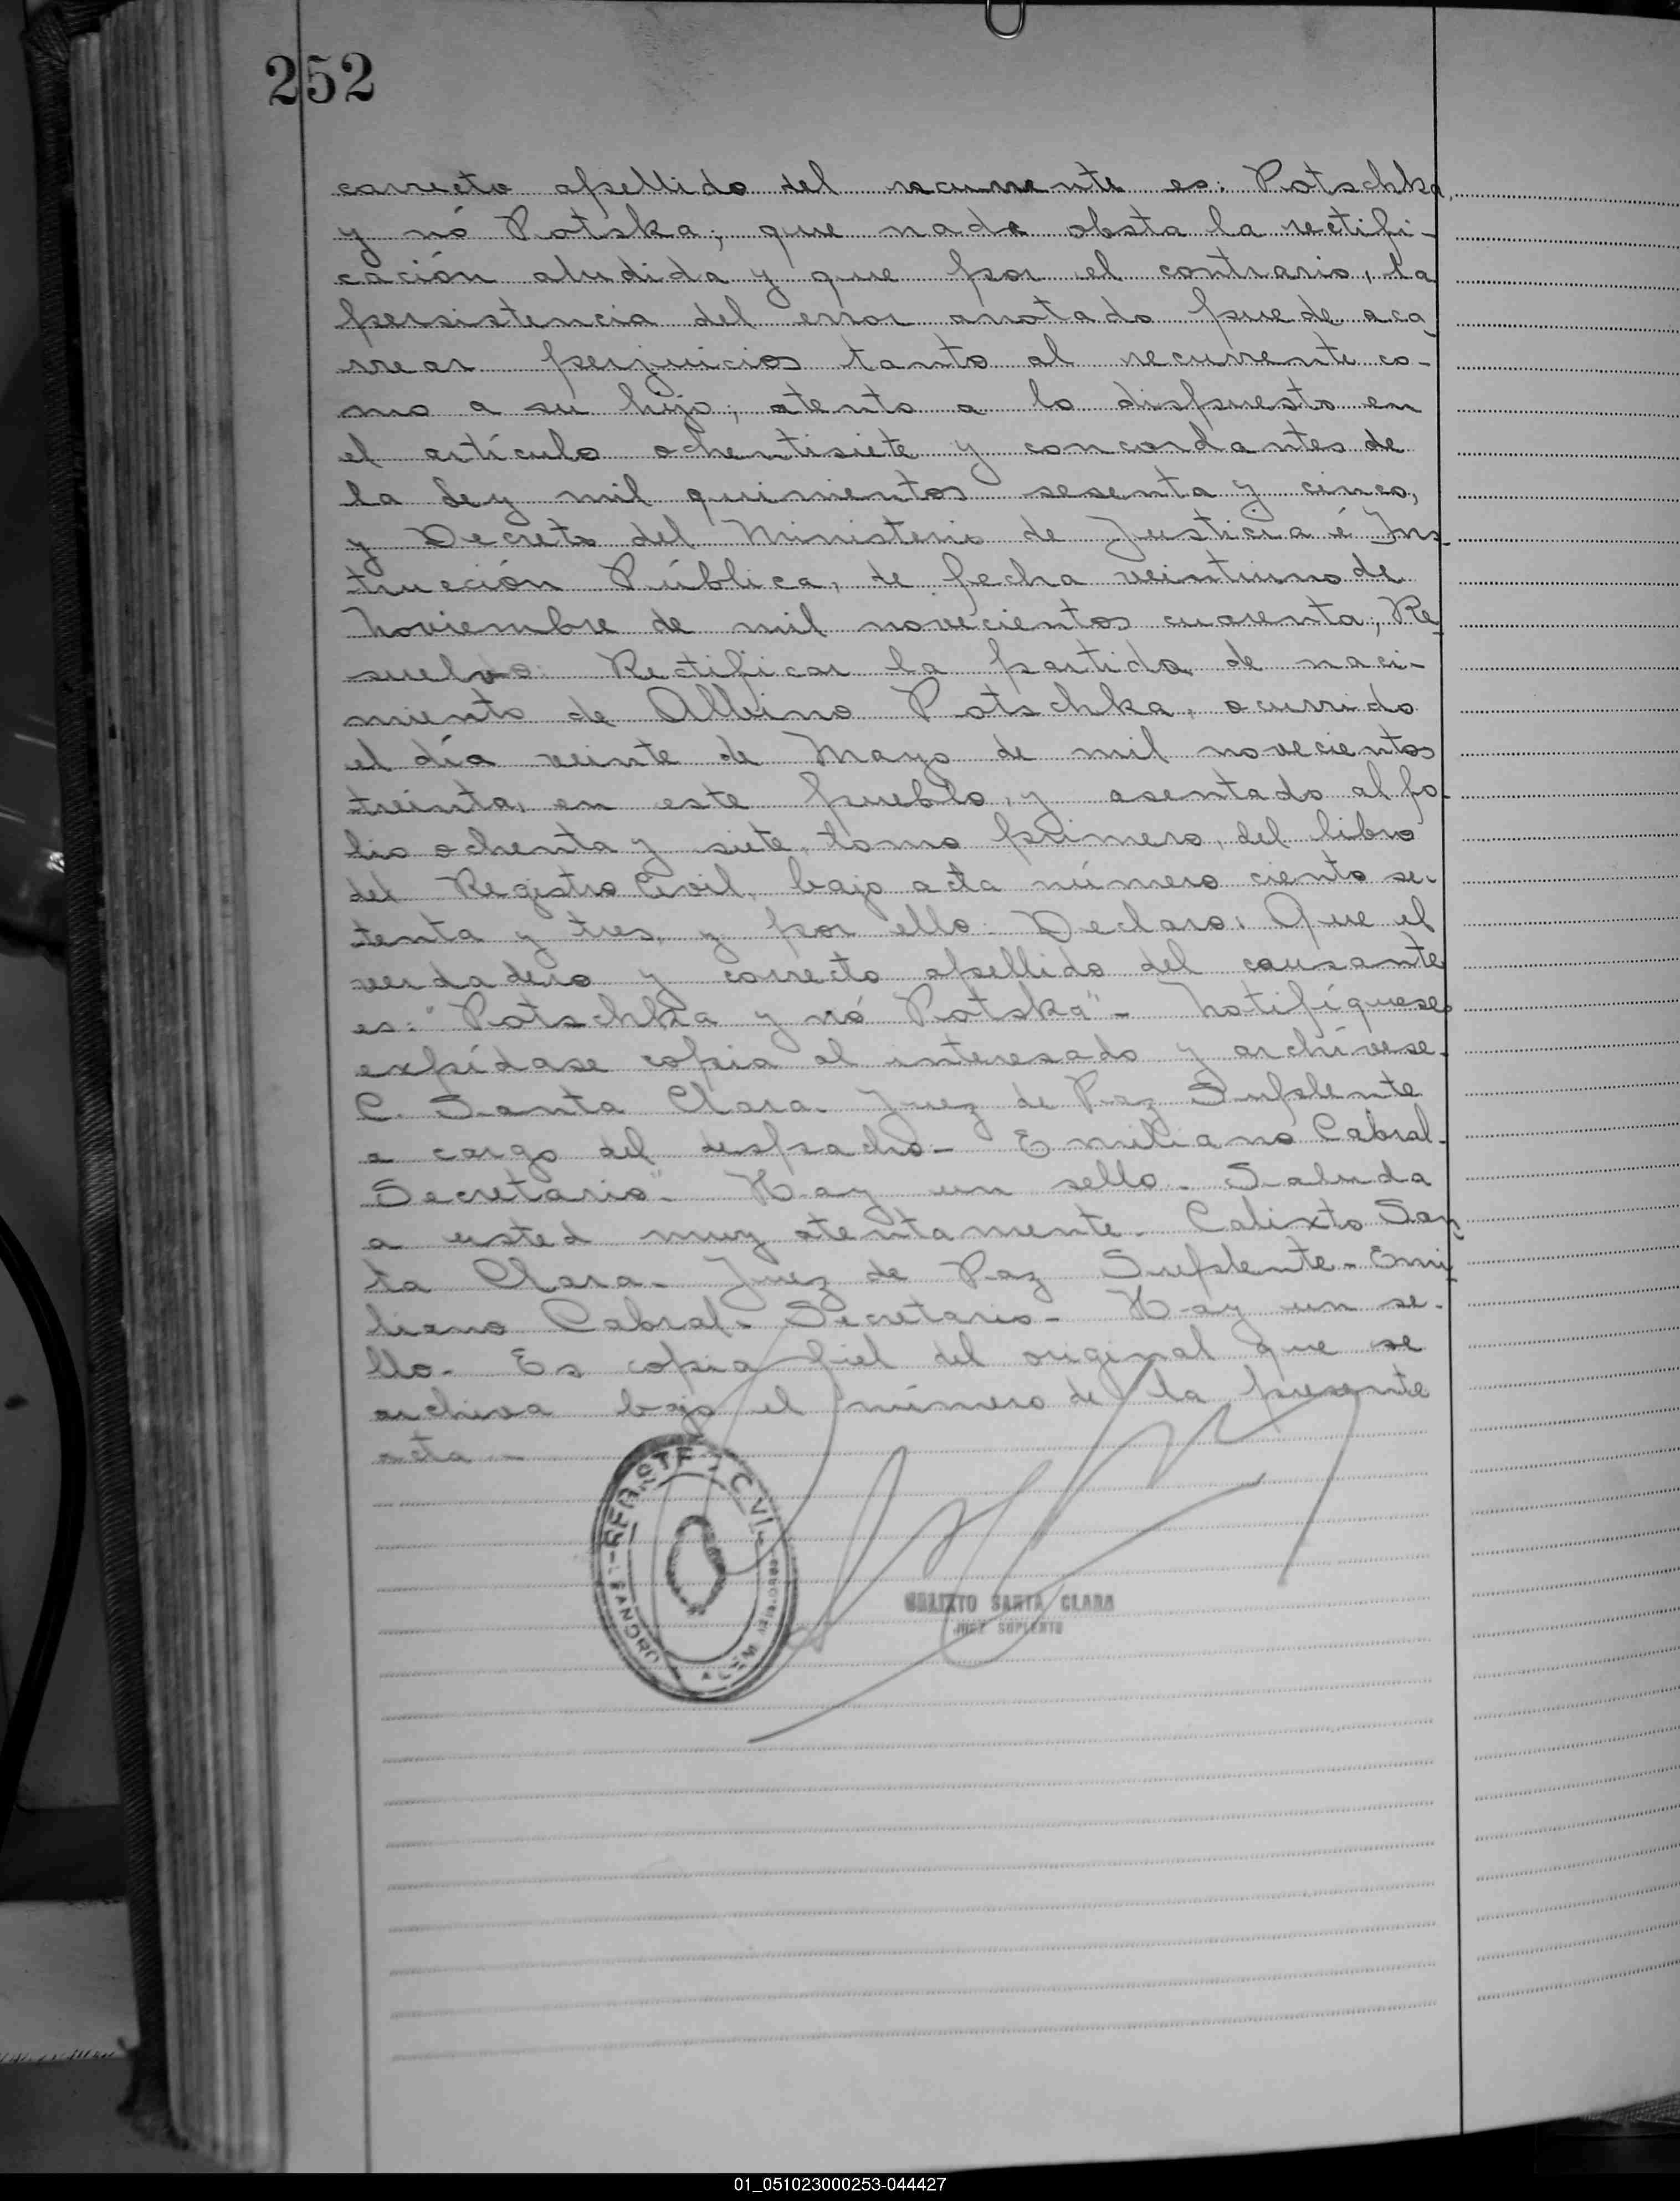 252
correcto apellido del recurrente es: Potschka,
y nó Potska; que nada obsta la rectifi-
cación aludida y que por el contrario, la
persistencia del error anotado puede aca
rrear perjuicios tanto al recurrente co-
mo a su hijo; atento a lo dispuesto en
el artículo ochentisiete y concordantes de
la Ley mil quinientos sesenta y cinco,
y Decreto del Ministerio de Justicia é Ins-
trucción Pública, de fecha veintiuno de
Noviembre de mil novecientos cuarenta; Re-
suelvo: Rectificar la partida de naci-
miento de Albino Potschka, ocurrido
el día veinte de Mayo de mil novecientos
treinta, en este pueblo, y asentado al fo-
lio ochenta y siete, tomo primero, del libro
del Registro Civil, bajo acta número ciento se-
tenta y tres, y por ello: Declaro: Que el
verdadero y correcto apellido del causante
es: "Potschka y nó Potska"- Notifíquese
expídase copia al interesado y archívese.
C. Santa Clara. Juez de Paz Suplente
a cargo del despacho- Emiliano Cabral-
Secretario". Hay un sello. Saluda
a usted muy atentamente. Calixto San
ta Clara- Juez de Paz Suplente- Emi
liano Cabral. Secretario- Hay un se-
llo- Es copia fiel del original que se
archiva bajo el número de la presente
acta-
REGISTRO CIVIL
LEANDRO N. ALEM
CALIXTO SANTA CLARA
JUEZ SUPLENTE
01_051023000253-044427